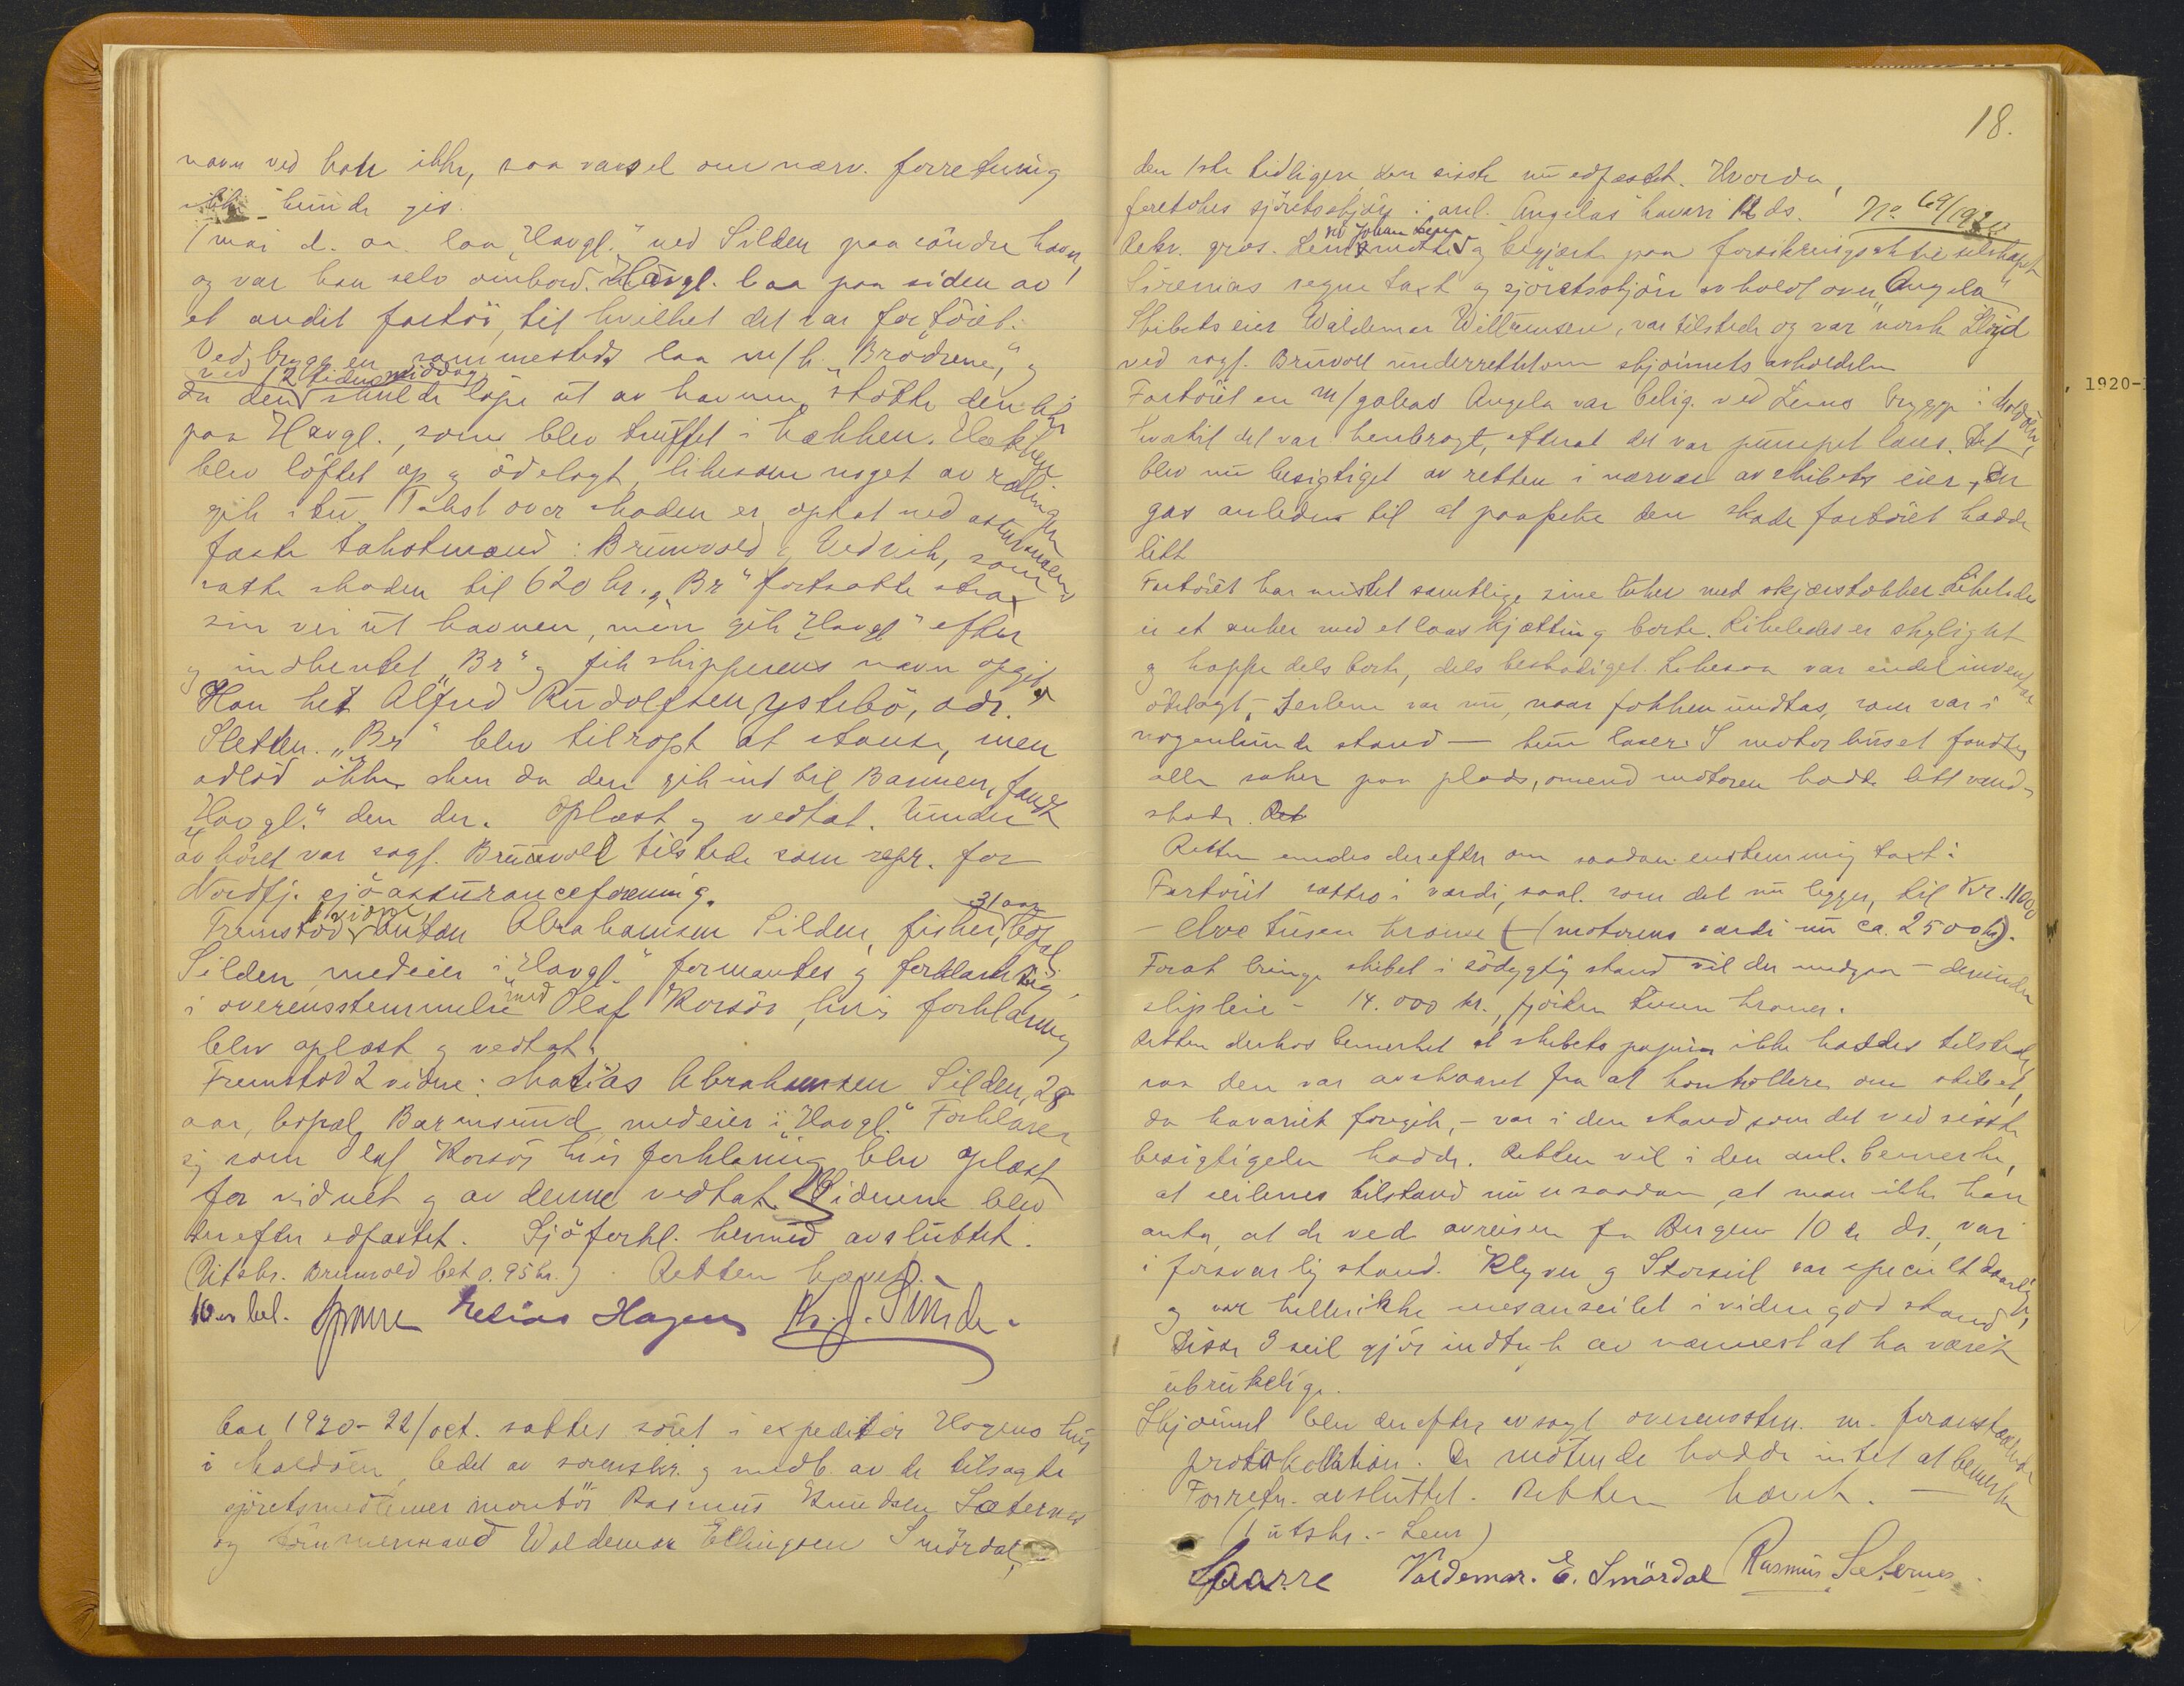 navn ved han ikke, saa varsel om nærv. forretning
ikke kunde gis.
I mai d. aa. laa "Havgl." ved Silden paa söndre havn,
og var han selv ombord. Havgl. laa paa siden av
et andet fartöi, til hvilket det var fortöiet.
Ved bryggen sammesteds laa m/k "Brödrene," og
ved 12 tiden middag
da den skulde löpe ut av havnen stötte den bos
paa Havgl., som blev truffet i hækken. Hækken
blev löftet op og ödelagt, likesom noget av rælingen
gik itu. Takst over skaden er optat ved assuransens
faste takstmænd: Brunvold & Vedvik, som
satte skaden til 620 kr. "Br" fortsatte strax
sin vei ut havnen, men gik "Havgl" efter
og indhentet "Br" og fik skipperens navn opgit.
Han het Alfred Rudolfsen Ystebö, adr.
Sletten. "Br" blev tilropt at stanse, men
adlöd ikke men da den gik ind til Barmen, fandt
"Havgl." den der. Oplæst og vedtat. Under
avhöret var sagf. Brunvoll tilstede som repr. for
Nordfj. sjöassuranceforening.
1 vidne, 31 aar
Fremstod Anton Abrahamsen Silden, fisker, bopæl
Silden, medeier i "Havgl." formantes og forklarte sig
i overensstemmelse med Olaf Korsör, hvis forklaring
blev oplæst og vedtat.
Fremstod 2 vidne: Matias Abrahamsen Silden, 28
aar, bopæl Barmsund, medeier i "Havgl." Forklarer
sig som Olaf Korsör hvis forklaring blev oplæst
for vidnet og av denne vedtat. Vidnerne blev
derefter edfæstet. Sjöforkl. hermed avsluttet.
(Utskr. Brunvold bet 0.95 kr.) Retten hævet.
10 er bel. Sparre Helias Hagen Kr. J. Sunde.
Aar 1920 - 22/oct. sattes söret i expeditör Hagens hus
i Maldöen, ledet av sorenskr. og medb. av de tilsagte
sjöretsmedlemer montör Rasmus Knudsen Sæternes
og tömmermand Waldemar Ellingsen Smördal,
18.
den 1ste tidligere den sisste nu edfæstet. Hvorda
foretokes sjöretsskjön i anl. Angelas havari 12 ds. No 69/1920
v/ Johan Lem
Rekv. gros. Lem mötte og begjærte paa forsikringsaktieselskapet
Sirenias vegne taxt og sjöretsskjön avholdt over "Angela"
Skibets eier Waldemar Willumsen, var tilstede og var norsk Lloyd
ved sagf. Brunvoll underrettet om skjönnets avholdelse
Fartöiet en m/galeas Angela var belig. ved Lems brygge i Moldöen,
hvortil det var henbragt, efterat det var pumpet læns. Det
blev nu besigtiget av retten i nærvær av skibets eier, der
gas anledn til at paapeke den skade fartöiet hadde
litt
Fartöiet har mistet samtlige sine luker med skjærstokker Likeledes
er et anker med et laas kjætting borte. Likeledes er skylight
og kappe dels bort, dels beskadiget. Likesaa var endel inventar
ödelagt, - Seilene var nu, naar fokken undtas, som var i
nogenlunde stand — kun laser. I motorhuset fandtes
alle saker paa plads, omend motoren hadde litt vand-
skade. Ret
Retten enedes derefter om saadan enstemmig taxt:
Fartöiet sættes i værdi, saal. som det nu ligger, til Kr. 11000
- elve tusen kroner (- (motorens værdi nu ca. 2500 kr).
Forat bringe skibet i södygtig stand vil der medgaa - derunder
slipleie - 14.000 kr., fjorten tusen kroner.
Retten derhos bemerket at skibets papirer ikke haddes tilstede,
saa den var avskaaret fra at kontrollere om skibet,
da havariet foregik, - var i den stand som det ved sisste
besigtigelse hadde. Retten vil i den anl. bemerke,
at seilenes tilstand nu er saadan, at man ikke kan
anta, at de ved avreisen fra Bergen 10 de ds., var
i forsvarlig stand. Klyver og Storseil var specielt daarlige,
og var hellerikke mesanseilet i videre god stand
Disse 3 seil gjör indtryk av nærmest at ha været
ubrukelige.
Skjönnet blev derefter avsagt overensstem. m. foranstaaende
protokollation. De mötende hadde intet at bemerke
Forretn. avsluttet. Retten hævet. —
(1 utskr. - Lem)
Sparre Valdemar. E. Smördal Rasmus Sæternes.
, 1920-1